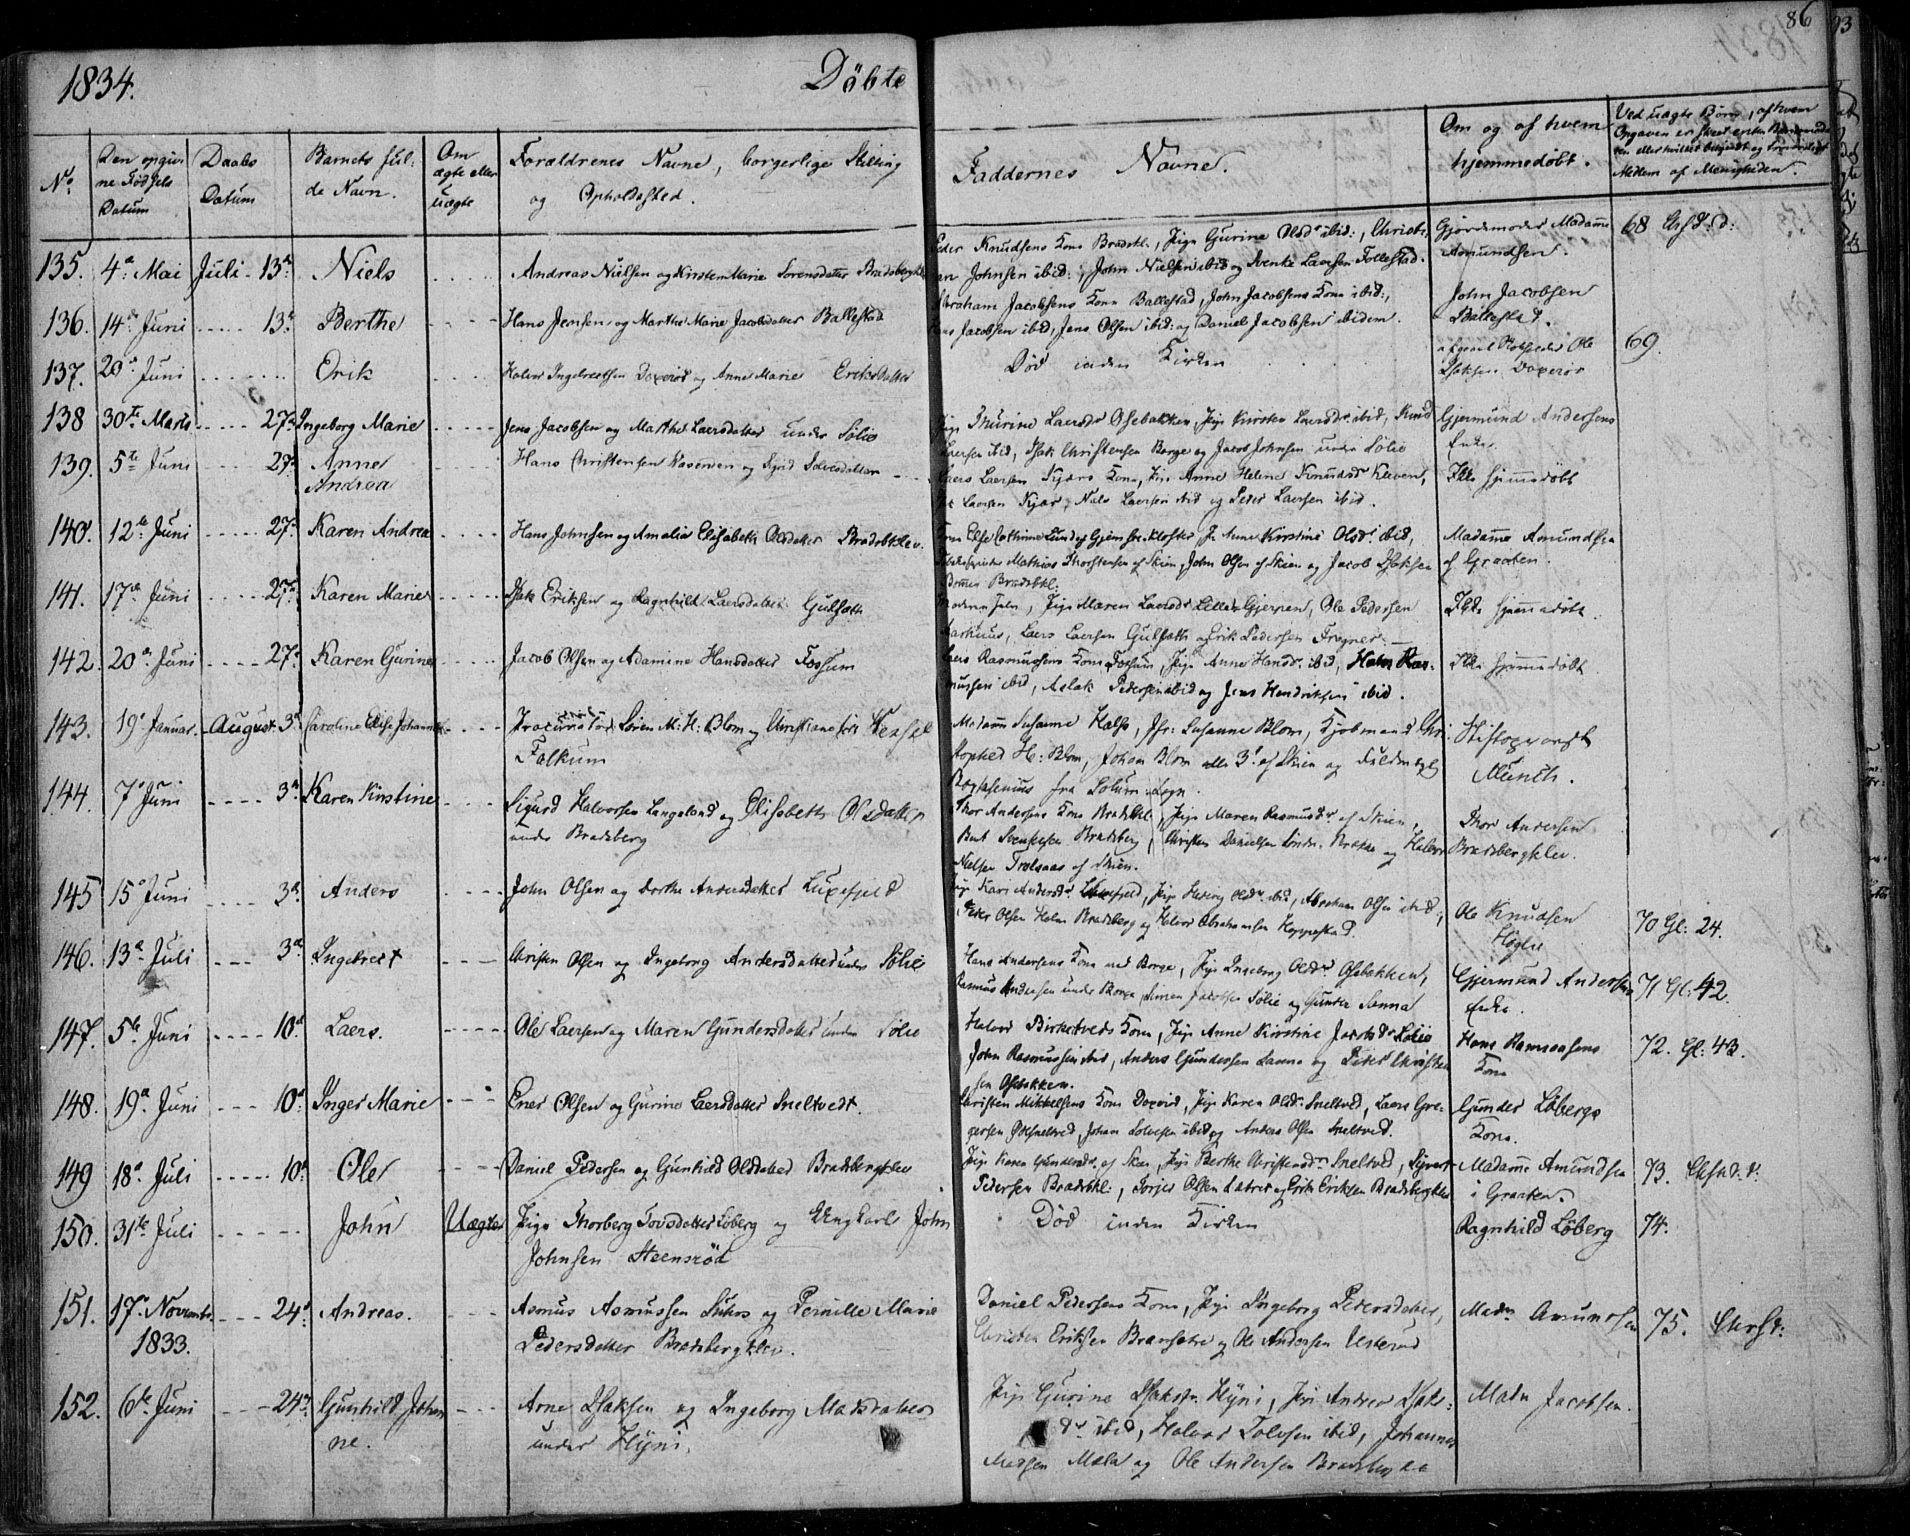 86
1834.
Döbte
No
Den opgiv-
ne Födsels
Datum
Daabs
Datum
Barnets ful-
de Navn.
Om
ægte eller
uægte
Forældrenes Navne, borgerlige Stilling
og Opholdssted.
Faddernes Navne.
Om og af hvem
hjemmedöbt.
Ved uægte Börn, af hvem
Opgaven er skeet enten
Medlem af Menigheden.
135. 4de Mai Juli 13de Niels
Andreas Nielsen og Kirsten Marie Sorensdatter Bradsbergklev
Peder Knudsens Kone Bradsbkl:, Pige Gurine Olsdr ibid:, Christi-
an Johnsen ibid:, John Nielsen ibid og Svenke Laersen Follestad.
Gjordemoder Madame
Amundsen.
68
136. 14de Juni 13de Berthe
Hans Jensen og Marthe Marie Jacobsdatter Ballestad
Abraham Jacobsens Kone Ballestad, John Jacobsens Kone ibid:,
Jacobsen ibid, Jens Olsen ibid: og Daniel Jacobsen ibidem.
John Jacobsen
Ballestad.
137. 20de Juni Erik
Halvor Ingebretsen Doxeröd og Anne Marie Eriksdatter
Död inden Kirken
Ole
Isaksen Doxeröd
69.
138 30te Marts 27de Ingeborg Marie
Jens Jacobsen og Marthe Laersdatter under Sölie
Pige Thurine Laersdr Osebakken, Pige Kirsten Laersdr ibid, Knud
Laersen ibid, Isak Christensen Borge og Jacob Johnsen under Sölie
Gjermund Andersens
Enke.
139. 5te Juni 27de Anne
Andrea
Hans Christensen og Sigrid
Laers Laersen Kjærs Kone, Pige Anne Helene Knudsdr Kleven,
Laersen Kjær, Nils Laersen ibid og Peder Laersen ibid.
Ikke hjemmedöbt
140. 12te Juni 27de Karen Andrea
Hans Johnsen og Amalia Elisabeth Olsdatter Bradsbklev.
Kone Else Cathrine Lund Gjemsöe Kloster, Pi: Anne Kirstine Olsdr ibid,
Mathias Thorstensen af Skien, John Olsen af Skien og Jacob Isaksen
Bradsbkl:
Madame Amundsen
af Graaten.
141. 17de Juni 27de Karen Marie
Isak Eriksen og Ragnhild Laersdatter Gulseth
Pige Maren Laersdr Lille Gjerpen, Ole Pedersen
Aarhuus, Laers Laersen Gulseth og Erik Pedersen Frogner.
Ikke hjemmedöbt.
142. 20de Juni 27de Karen Gurine
Jacob Olsen og Adamine Hansdatter Fossum
Laers Rasmussens Kone Fossum, Pige Anne Hansdr ibid, Hans Ras-
mussen ibid, Aslak Pedersen ibid og Jens Hendriksen ibid.
Ikke hjemmedöbt
143. 19de Januar. August 3de Caroline Elise Johanne
Procurator Sören M: H: Blom og Christiane Wensel
Falkum
Madam Susanne Kalsö, Jfr: Susanne Blom, Kjöbmand Chri-
stopher H: Blom, Johan Blom alle 3de af Skien og Fuldmægt
fra Solum Sogn.
Stiftsprovst
Munch.
144. 7de Juni 3de Karen Kirstine
Sigurd Halvorsen Langeland og Elisabeth Olsdatter
under Bradsberg
Thor Andersens Kone Bradsbkl:, Pige Maren Rasmusdr af Skien,
Bent Svennesen Bradsberg, Christen Danielsen og Halvor
Nielsen Trolsaas af Skien.
Thor Andersen
Bradsbergklev.
145 15de Juni 3de Anders
John Olsen og Dorthe Andersdatter Luxefjeld
Pige Kari Andersdr Luxefjeld, Pige Hedvig Olsdr ibid, Abraham Olsen ibid,
Peder Olsen Holm Bradsberg og Halvor Abrahamsen Koppestad.
Ole Knudsen
Höglie
70 Gl: 24.
146. 13de Juli 3de Ingebret
Christen Olsen og Ingeborg Andersdatter under Sölie
Hans Andersens Kone ved Borge, Pige Ingeborg Olsdr Osebakken,
Rasmus Andersen under Borge, Simen Jacobsen Sölie og Gunder Sanna
Gjermund Andersens
Enke.
71 Gl: 42.
147. 5te Juni 10de Laers.
Ole Laersen og Maren Gundersdatter under Sölie
Halvor Birketvedts Kone, Pige Anne Kirstine Jacobsdr Sölie
John Rasmussen ibid, Anders Gundersen Sanna og Peder Christen-
sen Osebakken.
Hans Ramsaasens
Kone
72. Gl: 43.
148. 19de Juni 10de Inger Marie
Ener Olsen og Gurine Laersdatter Sneltvedt.
Christen Mikkelsens Kone Doxröd, Pige Karen Olsdr Sneltved, Laers Gre-
gersen Sneltved, Johan Solvesen ibid og Anders Olsen Sneltved.
Gunder Löbergs
Kone.
149 18de Juli 10de Ole
Daniel Pedersen og Gunhild Olsdatter Bradsbergklev
Pige Karen Gundersdr af Skien, Pige Berthe Christensdr Sneltved, Sivert
Pedersen Bradsbkl:, Torjer Olsen og Erik Eriksen Bradsbergklev
Madame Amundsen
i Graaten.
73.
150. 31te Juli John Uægte
Pige Thorberg Tovsdatter Löberg og Ungkarl John
Johnsen Steensröd
Död inden Kirken
Ragnhild Löberg
74.
151. 17de Novembr.
1833.
24de Andreas.
Asmus Asmussen Luhrs og Pernille Marie
Pedersdatter Bradsbergklev.
Daniel Pedersens Kone, Pige Ingeborg Pedersdatter,
Christen Eriksen og Ole Andersen
Madm Amundsen
75.
152. 6te Juni 24de Gunhild Johan-
ne.
Arne Isaksen og Ingeborg Madsdatter
under Hÿni.
Pige Gurine Isaksdr Hÿni, Pige Andrea Isaks-
dr ibid, Halvor Tolvsen ibid, Johannes
Madsen Mæla og Ole Andersen
Madm Jacobsen.